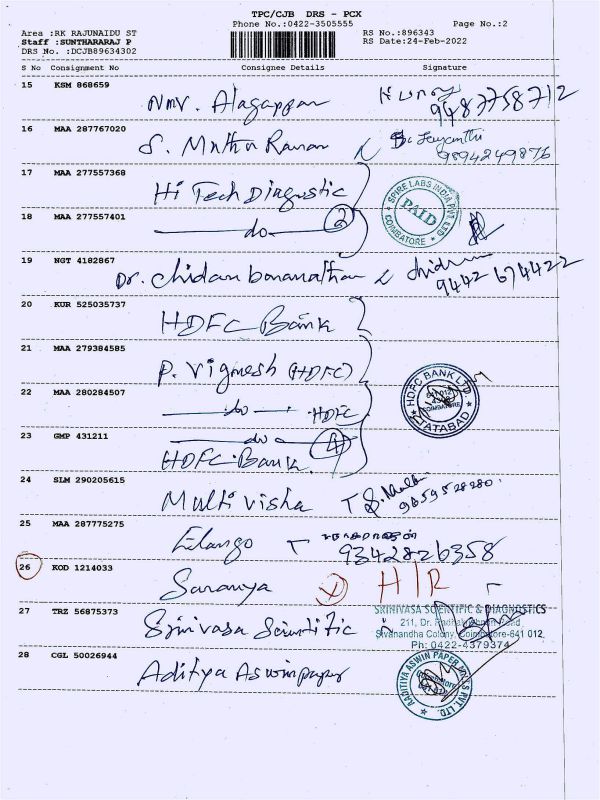 TPC/CJB DRS - PCX
Phone No.:0422-3505555 Page No.:2
Area :RK RAJUNAIDU ST RS No.:896343
Staff :SUNTHARARAJ P RS Date:24-Feb-2022
DRS No. :DCJB89634302
S No Consignment No Consignee Details Signature
15 KSM 868659
NMV. Alagappan 9487758712
16 MAA 287767020
S. Muthu Raman Jayanthi
9894249876
17 MAA 277557368
Hi Tech Diagnostic
SPIRE LABS INDIA PVT. LTD.
PAID
COIMBATORE
18 MAA 277557401
do 2
19 NGT 4182867
Dr. Chidambaranathan
9442674422
20 KUR 525035737
HDFC Bank
21 MAA 279384585
P. Vignesh (HDFC)
HDFC BANK LTD.
COIMBATORE
22 MAA 280284507
do HDFC
23 GMP 431211
do 4
HDFC Bank
24 SLM 290205615
Multi Visha
9659528280
25 MAA 287775275
Elango
9342826358
26 KOD 1214033
Saranya H/R
27 TRZ 56875373
SRINIVASA SCIENTIFIC & DIAGNOSTICS
Srinivasa Scientific
211, Dr.
Sivanandha Colony, Coimbatore-641 012
Ph: 0422-4379374
28 CGL 50026944
Aditya Aswinpaper
AADITYA ASWIN PAPER MILLS PVT. LTD.